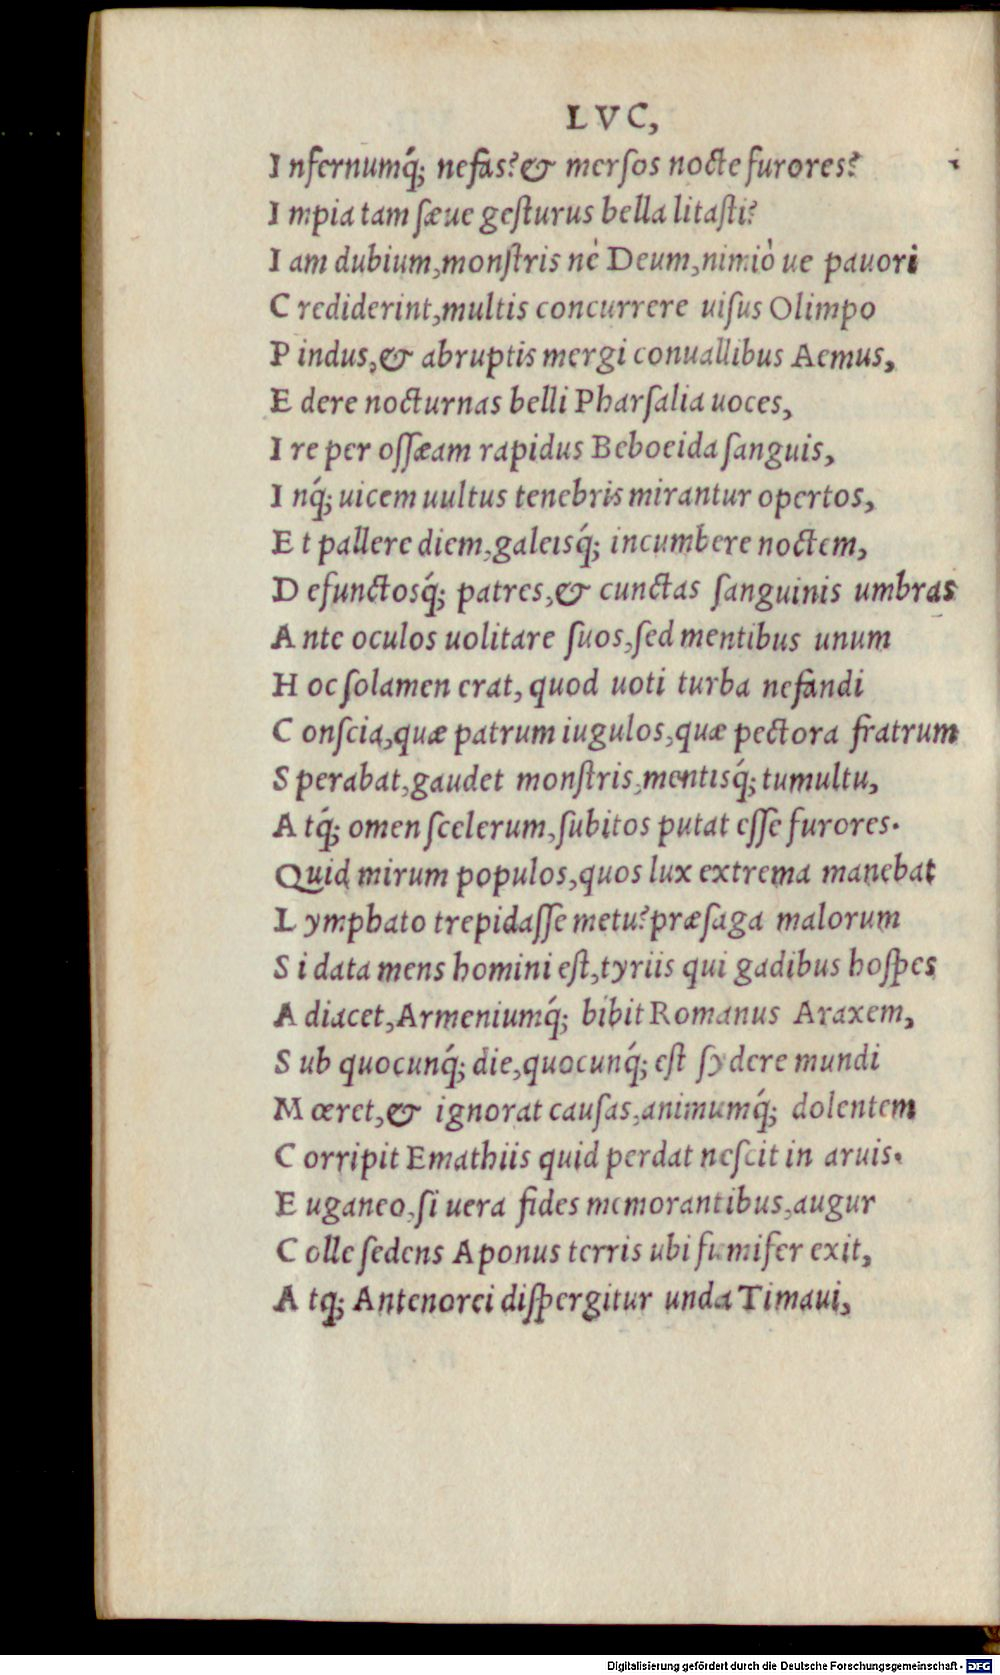 LVC,
I nfernumq́; nefas? & mersos nocte furores?
I mpia tam sæue gesturus bella litasti?
I am dubium, monstris nè Deum, nimiò ue pauori
C rediderint, multis concurrere uisus Olimpo
P indus, & abruptis mergi conuallibus Aemus,
E dere nocturnas belli Pharsalia uoces,
I re per ossæam rapidus Beboeida sanguis,
I nq́; uicem uultus tenebris mirantur opertos,
E t pallere diem, galeisq́; incumbere noctem,
D efunctosq́; patres, & cunctas sanguinis umbras
A nte oculos uolitare suos, sed mentibus unum
H oc solamen erat, quod uoti turba nefandi
C onscia, quæ patrum iugulos, quæ pectora fratrum
S perabat, gaudet monstris, mentisq́; tumultu,
A tq́; omen scelerum, subitos putat esse furores.
Quid mirum populos, quos lux extrema manebat
L ymphato trepidasse metu? præsaga malorum
S i data mens homini est, tyriis qui gadibus hospes
A diacet, Armeniumq́; bibit Romanus Araxem,
S ub quocunq́; die, quocunq́; est sydere mundi
M œret, & ignorat causas, animumq́; dolentem
C orripit Emathiis quid perdat nescit in aruis.
E uganeo, si uera fides memorantibus, augur
C olle sedens Aponus terris ubi fumifer exit,
A tq; Antenorei dispergitur unda Timaui,
Digitalisierung gefördert durch die Deutsche Forschungsgemeinschaft - DFG